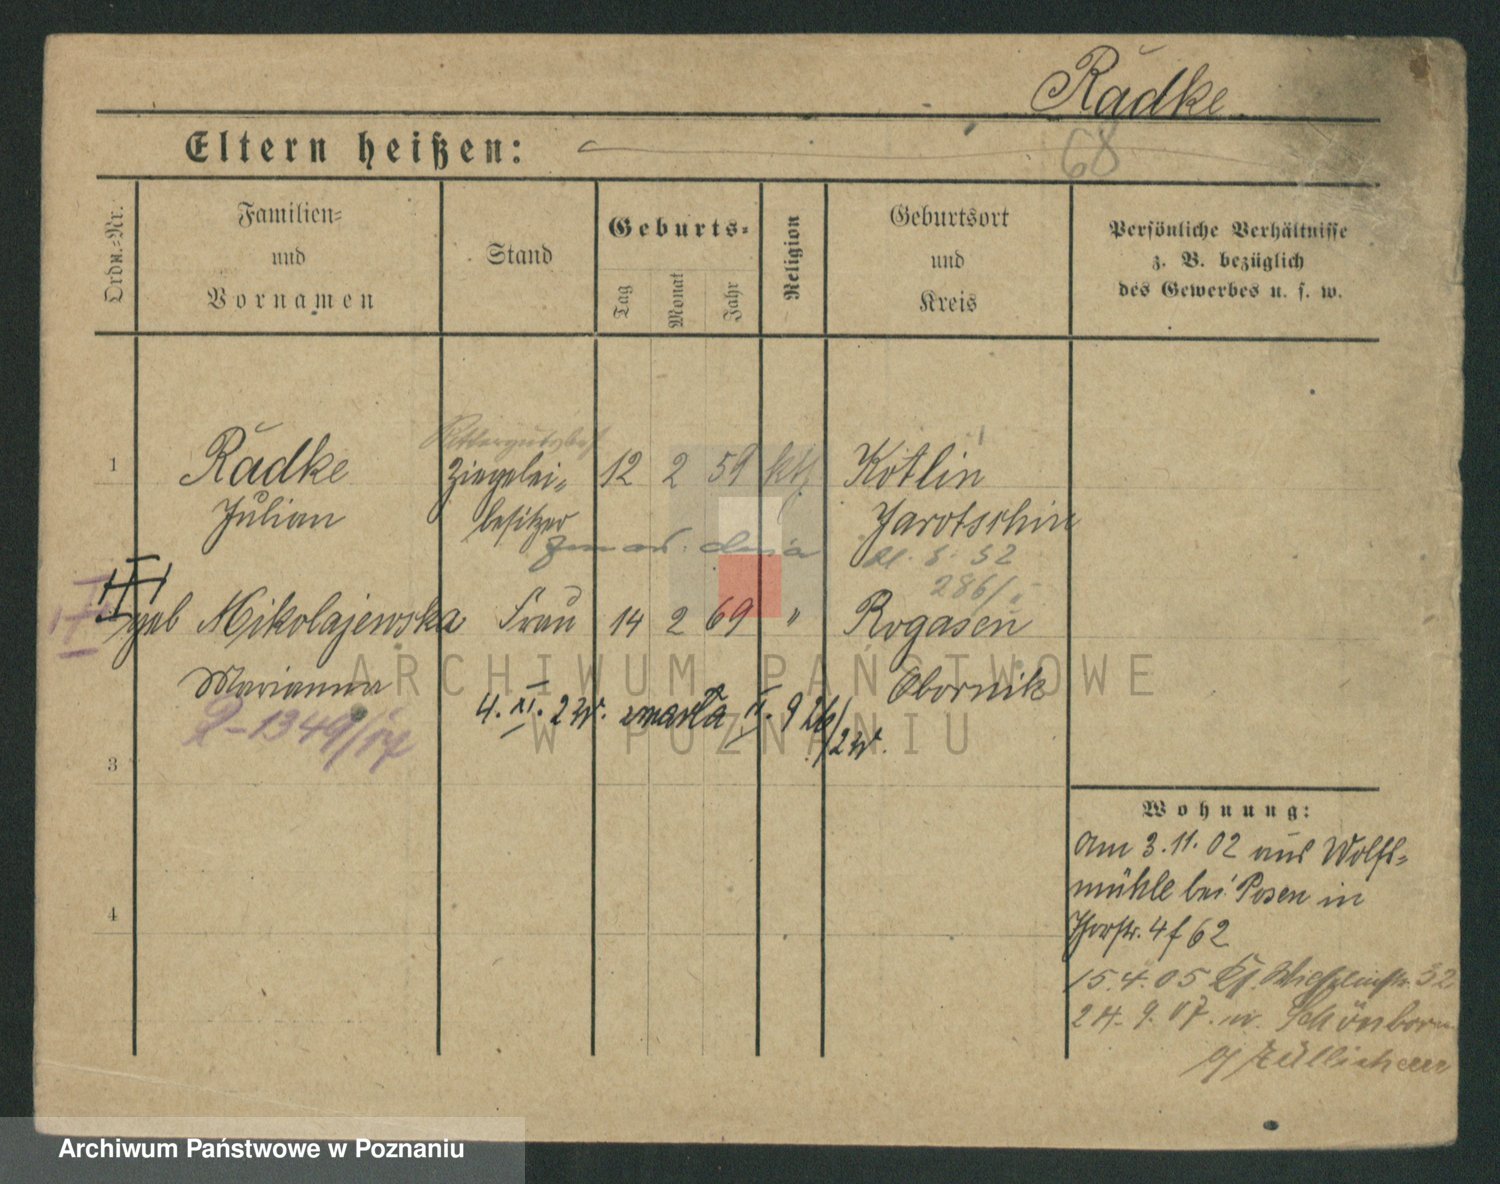 Radke
68
Eltern heißen:
Ordn.-Nr.
Familien-
und
Vornamen
Stand
Geburts-
Tag
Monat
Jahr
Religion
Geburtsort
und
Kreis
Persönliche Verhältnisse
z. B. bezüglich
des Gewerbes u. s. w.
Rittergutsbes
1 Radke Ziegelei- 12 2 59 kth Kotlin
Julian besitzer Jarotschin
286/
geb Mikolajewska Frau 14 2 69 " Rogasen
Marianna Obornik
4. XI. 2 zmarła
ARCHIWUM PAŃSTWOWE
W POZNANIU
3
4
Wohnung:
am 3.11.02 aus Wolfs-
mühle bei Posen in
Thorstr. 4 f 62
15.4.05 32
24.9.07. n. Schönborn
Züllichau
Archiwum Państwowe w Poznaniu